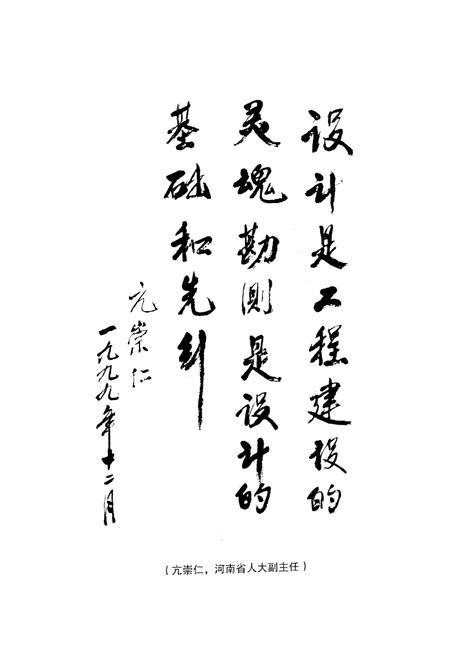 设计是工程建设的
灵魂勘测是设计的
基础和先纠
亢崇仁
一九九九年十二月
(亢崇仁，河南省人大副主任)